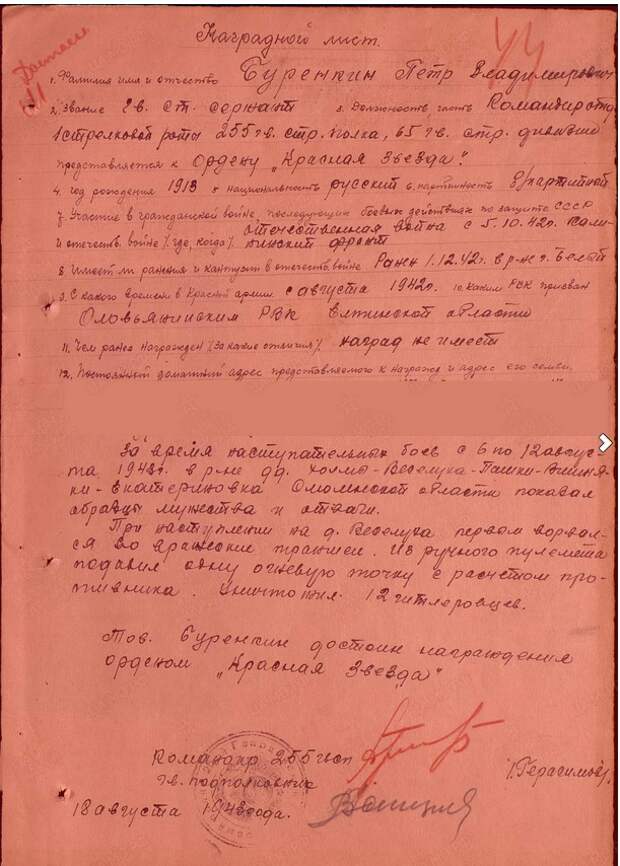 Наградной лист.
1. Фамилия имя и отчество Буренкин Петр Владимирович
2. Звание Гв. ст. сержант 3. Должность, часть Командир отд.
1 стрелковой роты 255 гв. стр. полка, 65 гв. стр. дивизии
представляется к Ордену „Красная Звезда".
4. год рождения 1913 5 национальность русский 6. партийность б/партийной
7. Участие в гражданской войне, последующих боевых действиях по защите СССР
и отечеств. войне (где, когда) отечественная война с 5.10.42г. Кали-
нинский фронт
8. Имеет ли ранения и контузии в отечеств войне Ранен 1.12.42г. в р-не г. Белой
9. С какого времени в Красной армии. с августа 1942г. 10. Каким РВК призван
Оловьянинским РВК области
11. Чем ранее награжден (За какие отличия) наград не имеет
12. Постоянный домашний адрес представляемого к награжд и адрес его семьи.
За время наступательных боев с 6 по 12 авгус-
та 1943г. в р-не дд. Веселуха-Пашки-Вишня-
ки-Екатериновка Смоленской области показал
образцы мужества и отваги.
При наступлении на д. Веселуха первом ворвал-
ся во вражеские траншеи. Из ручного пулемета
подавил одну огневую точку с расчетом про-
тивника. Уничтожил 12 гитлеровцев.
Тов. Буренкин достоин награждения
орденом „Красная Звезда"
Командир 255 гвсп
гв. подполковник
(Герасимов).
18 августа 1943 года.